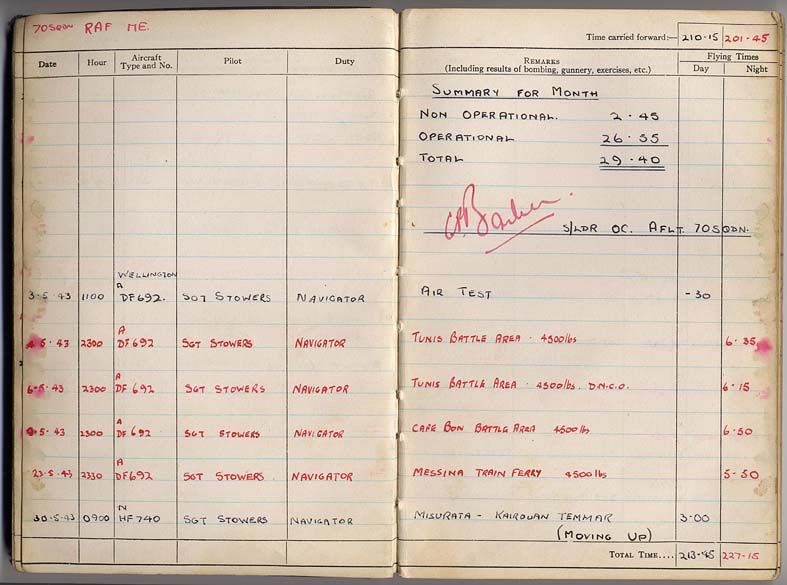 70 SQDN RAF ME.
Time carried forward:— 210-15 201-45
Date Hour Aircraft Type and No. Pilot Duty REMARKS (Including results of bombing, gunnery, exercises, etc.) Flying Times Day Night
SUMMARY FOR MONTH
NON OPERATIONAL. 2 . 45
OPERATIONAL 26 . 55
TOTAL 29 . 40
S/LDR OC. A FLT. 70 SQDN.
WELLINGTON
A
3-5-43 1100 DF692. SGT STOWERS NAVIGATOR AIR TEST - 30
A
4-5-43 2300 DF692 SGT STOWERS NAVIGATOR TUNIS BATTLE AREA . 4500 lbs 6-35
A
6-5-43 2300 DF692 SGT STOWERS NAVIGATOR TUNIS BATTLE AREA . 4500 lbs. D.N.C.O. 6-15
A
9-5-43 2300 DF692 SGT STOWERS NAVIGATOR CAPE BON BATTLE AREA 4500 lbs 6-50
A
23-5-43 2330 DF692 SGT STOWERS NAVIGATOR MESSINA TRAIN FERRY 4500 lbs 5-50
N
30-5-43 0900 HF740 SGT STOWERS NAVIGATOR MISURATA - KAIROUAN TEMMAR 3-00
(MOVING UP)
TOTAL TIME.... 213-45 227-15